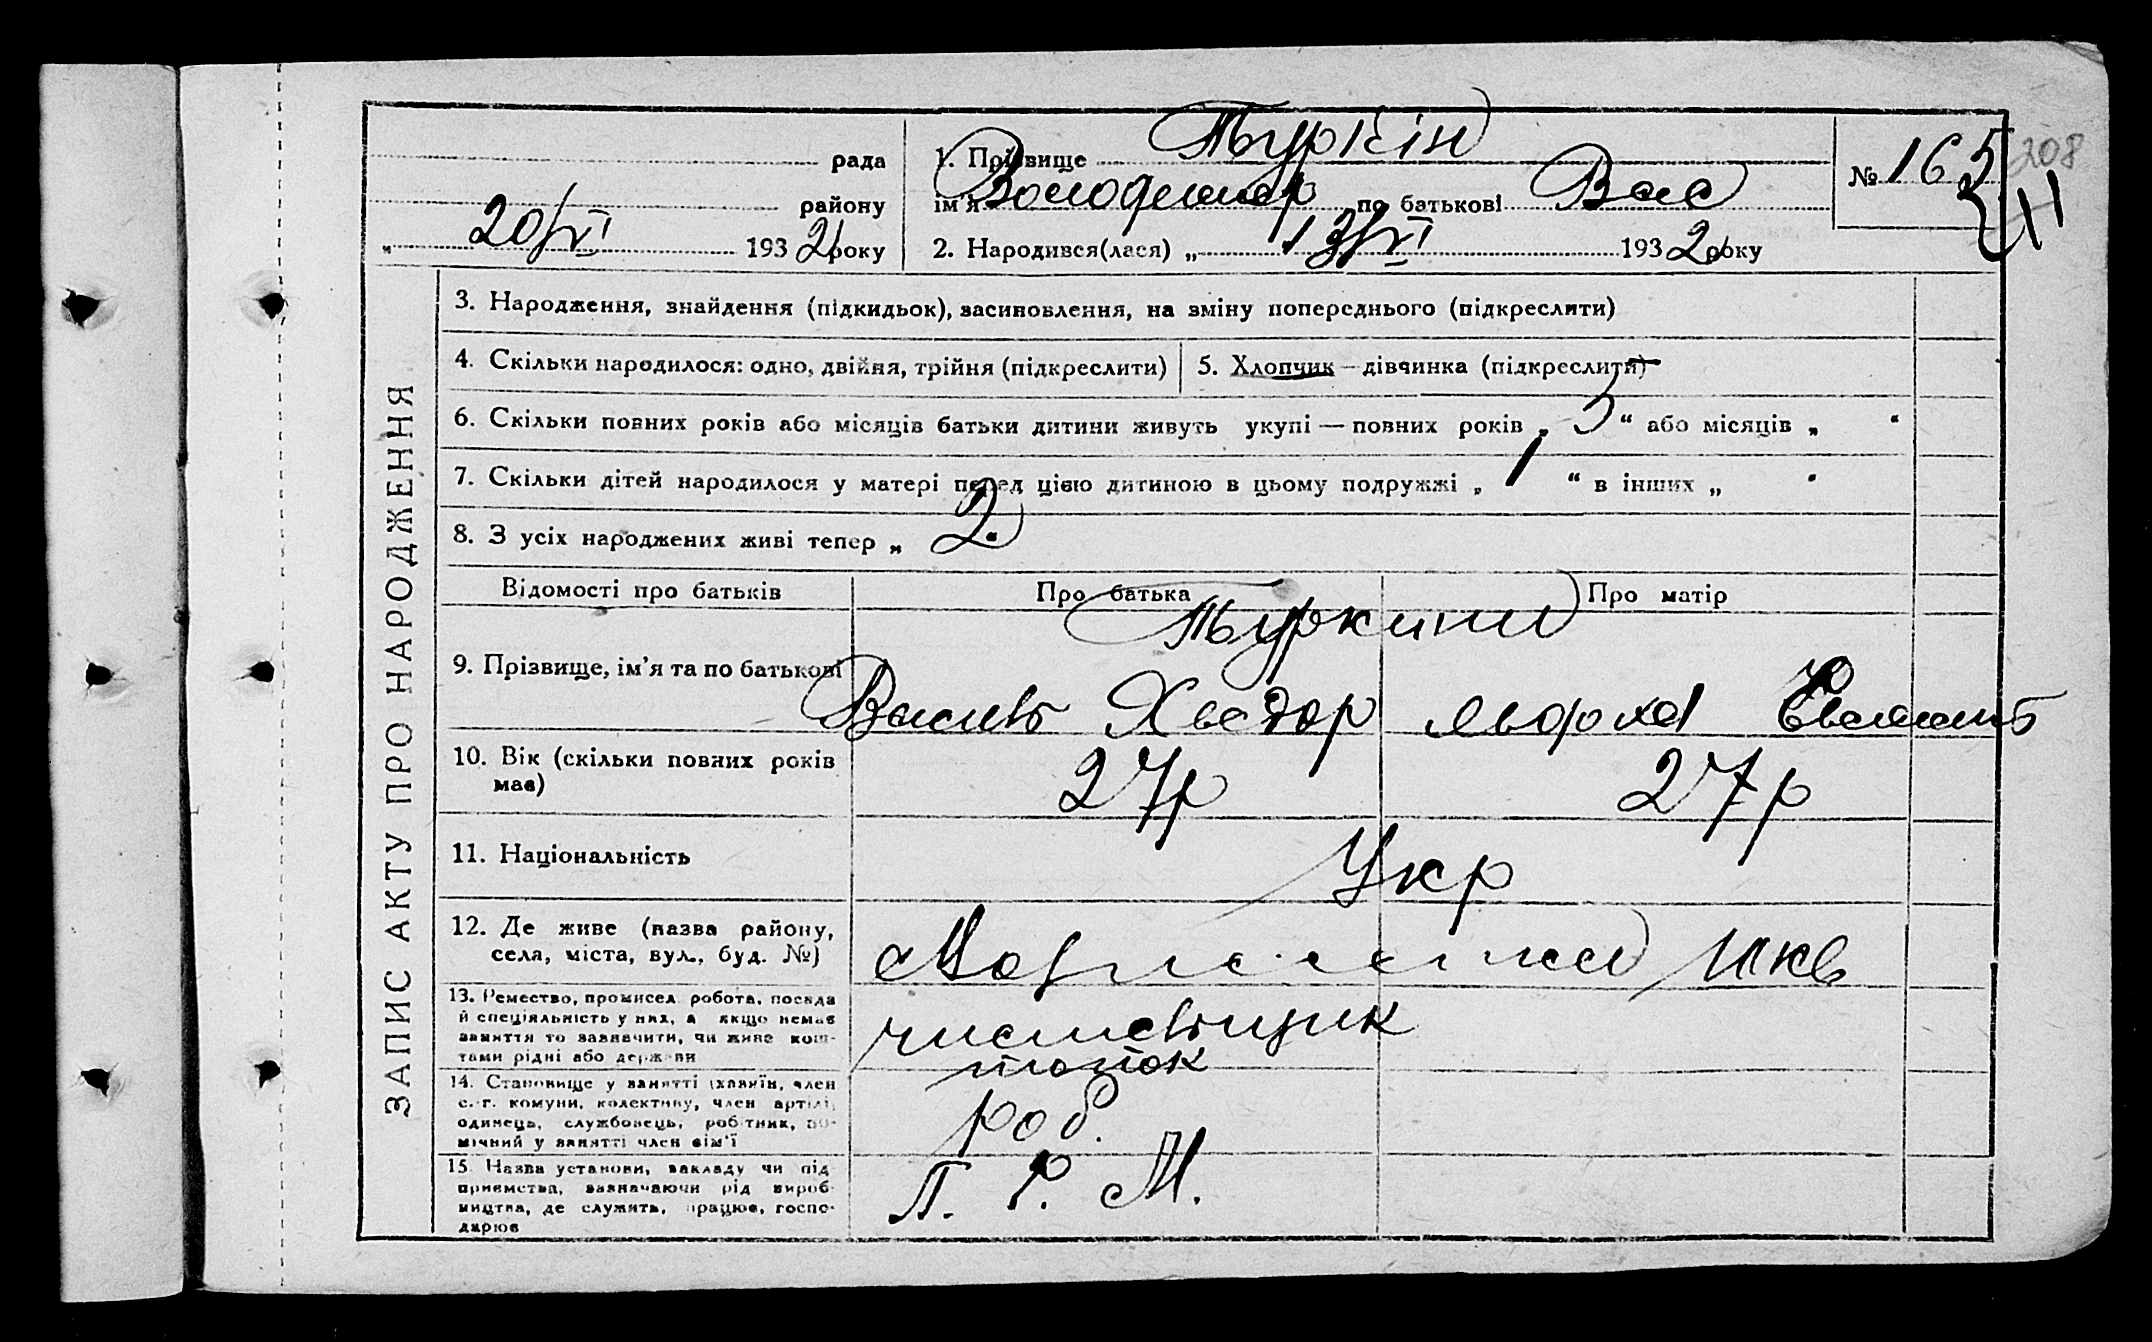 рада
району
„ 20/VI 1932 року
1. Прізвище Туркін
ім'я Володимир по батькові Вас
2. Народився(лася) „ 13/VI 1932 року
№ 165
208
11
ЗАПИС АКТУ ПРО НАРОДЖЕННЯ
3. Народження, знайдення (підкидьок), засиновлення, на зміну попереднього (підкреслити)
4. Скільки народилося: одно, двійня, трійня (підкреслити)
5. Хлопчик — дівчинка (підкреслити)
6. Скільки повних років або місяців батьки дитини живуть укупі — повних років „ 5 “ або місяців „ “
7. Скільки дітей народилося у матері перед цією дитиною в цьому подружжі „ 1 “ в інших „ “
8. З усіх народжених живі тепер „ 2 “
Відомості про батьків
Про батька
Про матір
9. Прізвище, ім'я та по батькові
Туркини
Василь Хведор
10. Вік (скільки повних років
має)
27р
27р
11. Національність
Укр
12. Де живе (назва району,
села, міста, вул., буд. №)
13. Ремество, промисел робота, посада
й спеціяльність у них, а якщо немає
заняття то зазначити, чи живе кош-
тами рідні або держави
топок
14. Становище у занятті (хазяїн, член
с.-г. комуни, колективу, член артілі,
одинець, службовець, робітник, по-
мічний у занятті член сім'ї
роб.
15. Назва установи, закладу чи під
приємства, зазначаючи рід вироб-
ництва, де служить, працює, госпо-
дарює
Л. Р. М.